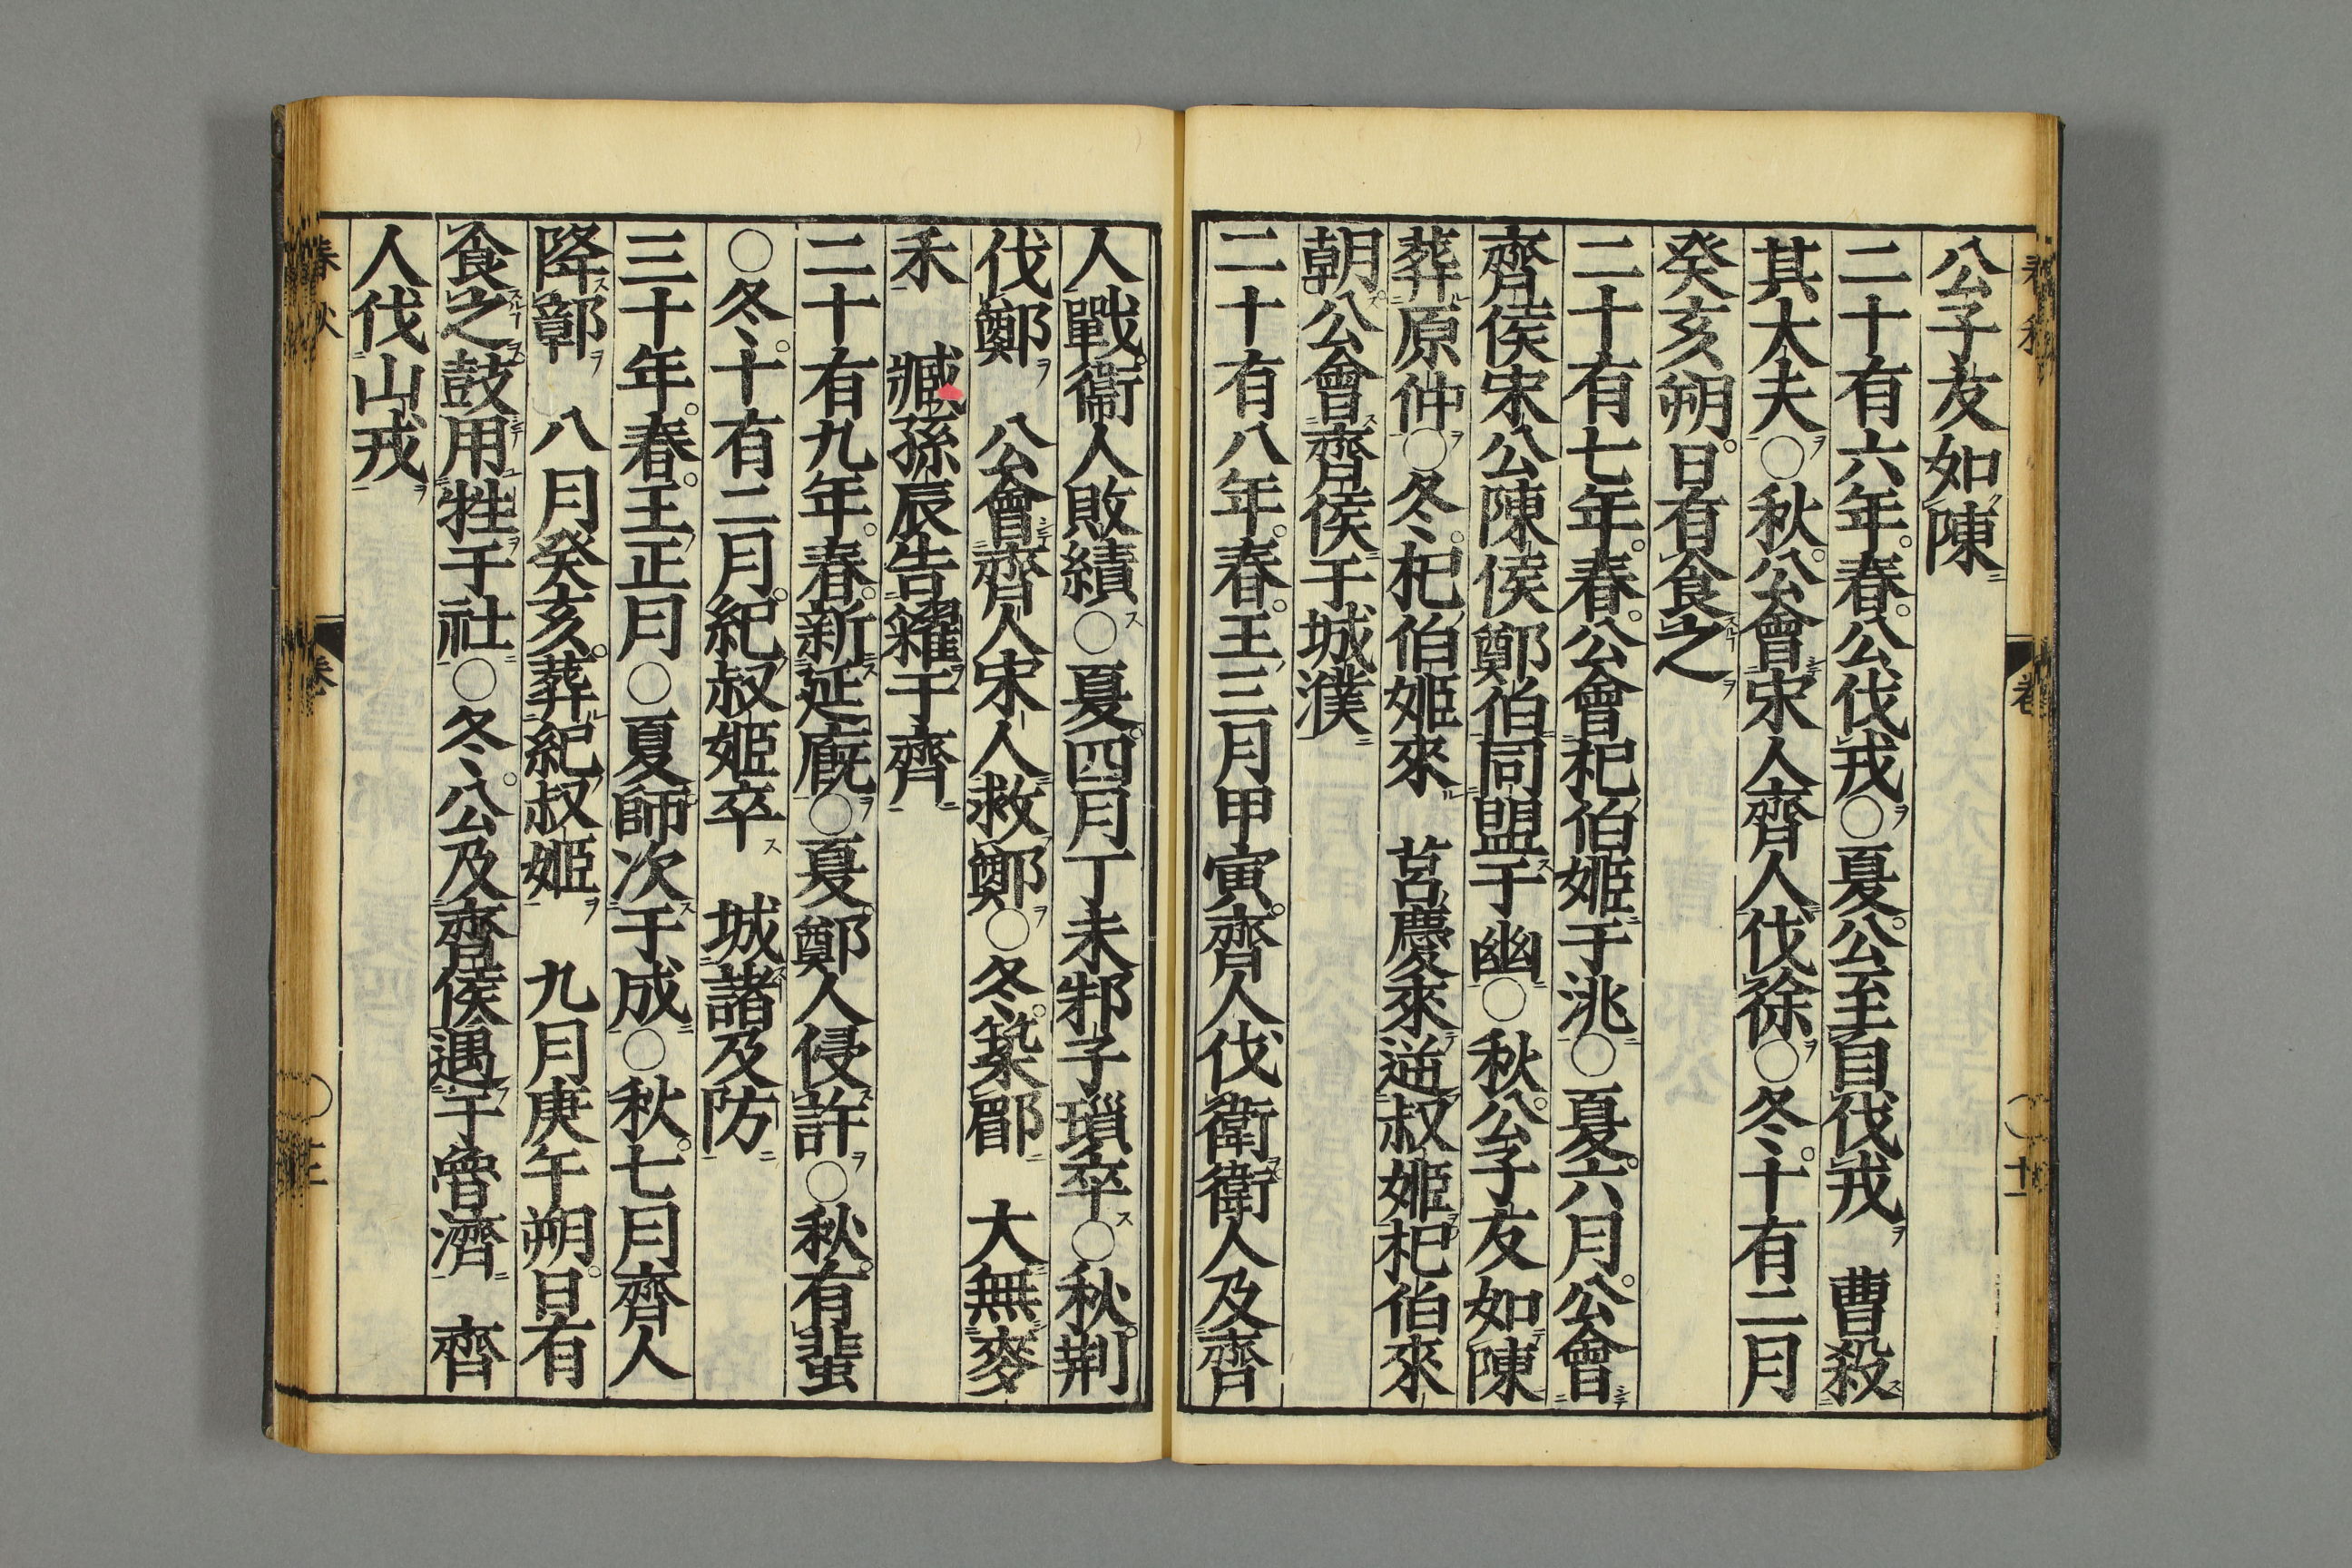 公子友如陳
二十有六年春公伐戎○夏公至自伐戎　曹殺
其大夫○秋公會宋人齊人伐徐○冬十有二月
癸亥朔日有食之
二十有七年春公會杞伯姬于洮○夏六月公會
齊侯宋公陳侯鄭伯同盟于幽○秋公子友如陳
葬原仲○冬杞伯姬來　莒慶來逆叔姬杞伯來
朝公會齊侯于城濮
二十有八年春王三月甲寅齊人伐衛衛人及齊
人戰衛人敗績○夏四月丁未邾子瑣卒○秋荆
伐鄭　公會齊人宋人救鄭○冬築郿　大無麥
禾　臧孫辰告糴于齊
二十有九年春新延廐○夏鄭人侵許○秋有蜚
○冬十有二月紀叔姬卒　城諸及防
三十年春王正月○夏師次于成○秋七月齊人
降鄣　八月癸亥葬紀叔姬　九月庚午朔日有
食之鼓用牲于社○冬公及齊侯遇于魯濟　齊
人伐山戎